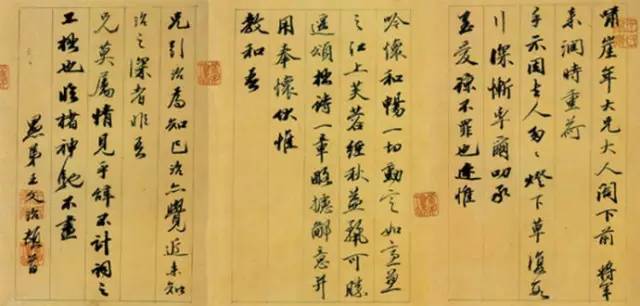 嘯崖年大兄大人閣下前 將軍
來潤時重荷
手示因去人匆匆燈下草復
深慚率爾叨承
至愛諒不罪也迩惟
吟懷和暢一切動定如宜
之江上芙蓉經秋益豔可勝
遥頌拙詩一章略攄鄙意并
用奉懷伏惟
教和
兄引治為知己治亦覺近來知
治之深者非吾
兄莫屬情見乎辭不計詞之
工拙也臨楮神馳不盡
愚弟王文治頓首